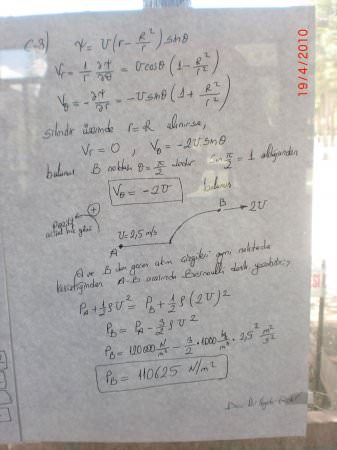 C-3) ψ = U(r - R²/r) sinθ
Vr = 1/r ∂ψ/∂θ = U cosθ (1 - R²/r²)
Vθ = -∂ψ/∂r = -U sinθ (1 + R²/r²)
silindir üzerinde r=R alınırsa,
Vr = 0 , Vθ = -2U sinθ
bulunur. B noktası θ = π/2 sin π/2 = 1 olduğundan
Vθ = -2U bulunur.
+
B → 2U
U = 2,5 m/s
A
A ve B den geçen akım çizgileri aynı noktada
kesiştiğinden A-B arasında Bernoulli denk. yazabiliriz;
PA + 1/2 ρU² = PB + 1/2 ρ(2U)²
PB = PA - 3/2 ρU²
PB = 120000 N/m² - 3/2 · 1000 kg/m³ · 2,5² m²/s²
PB = 110625 N/m²
19/4/2010